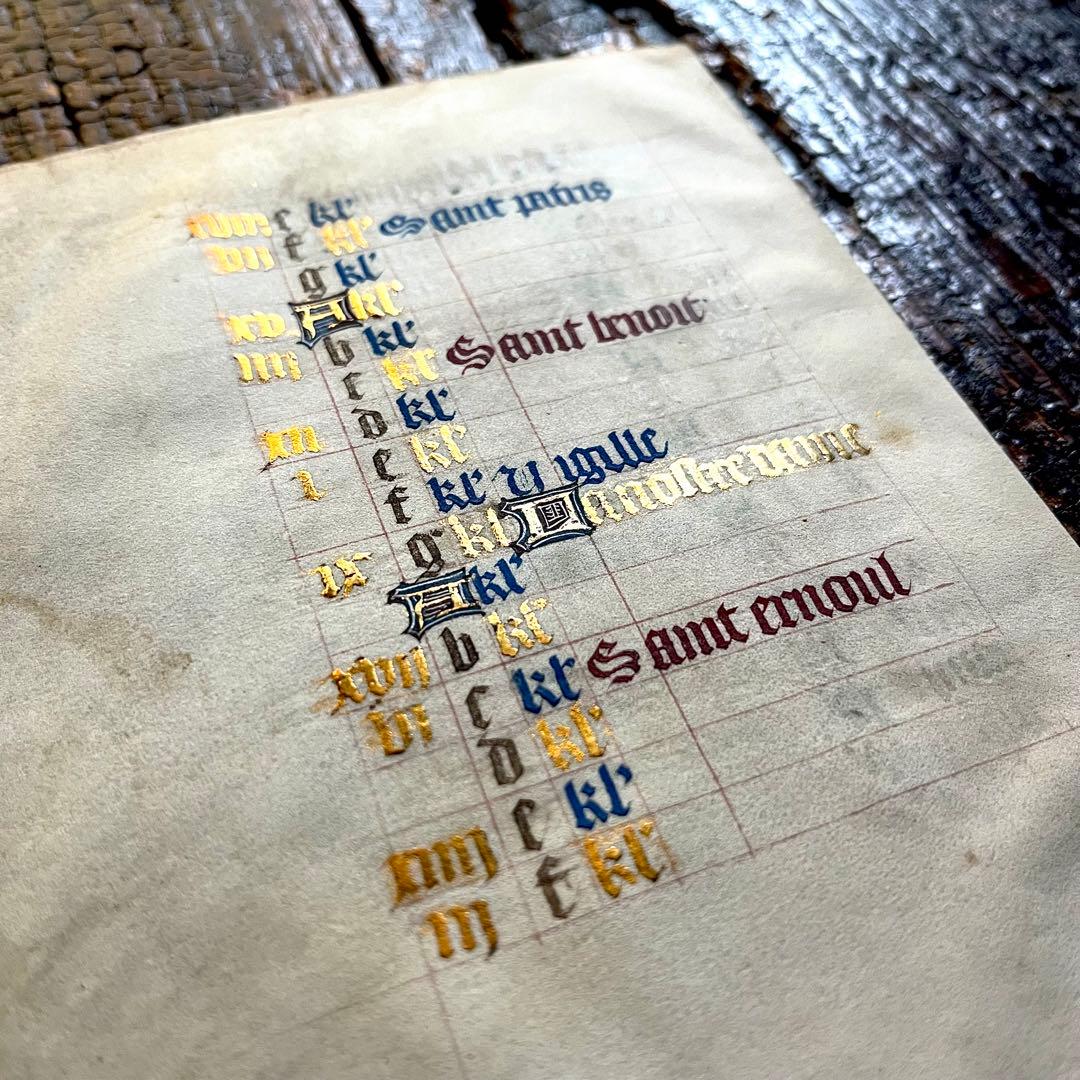 xviii e kl'
vii f kl' Saint patris
g kl'
xv A kl'
iiii b kl'
c kl' Saint benoit
xii d kl'
i e kl'
f kl' Vigille
ix g kl' La nostre dame
A kl'
xvii b kl'
vi c kl' Saint ernoul
d kl'
xiiij e kl'
iij f kl'